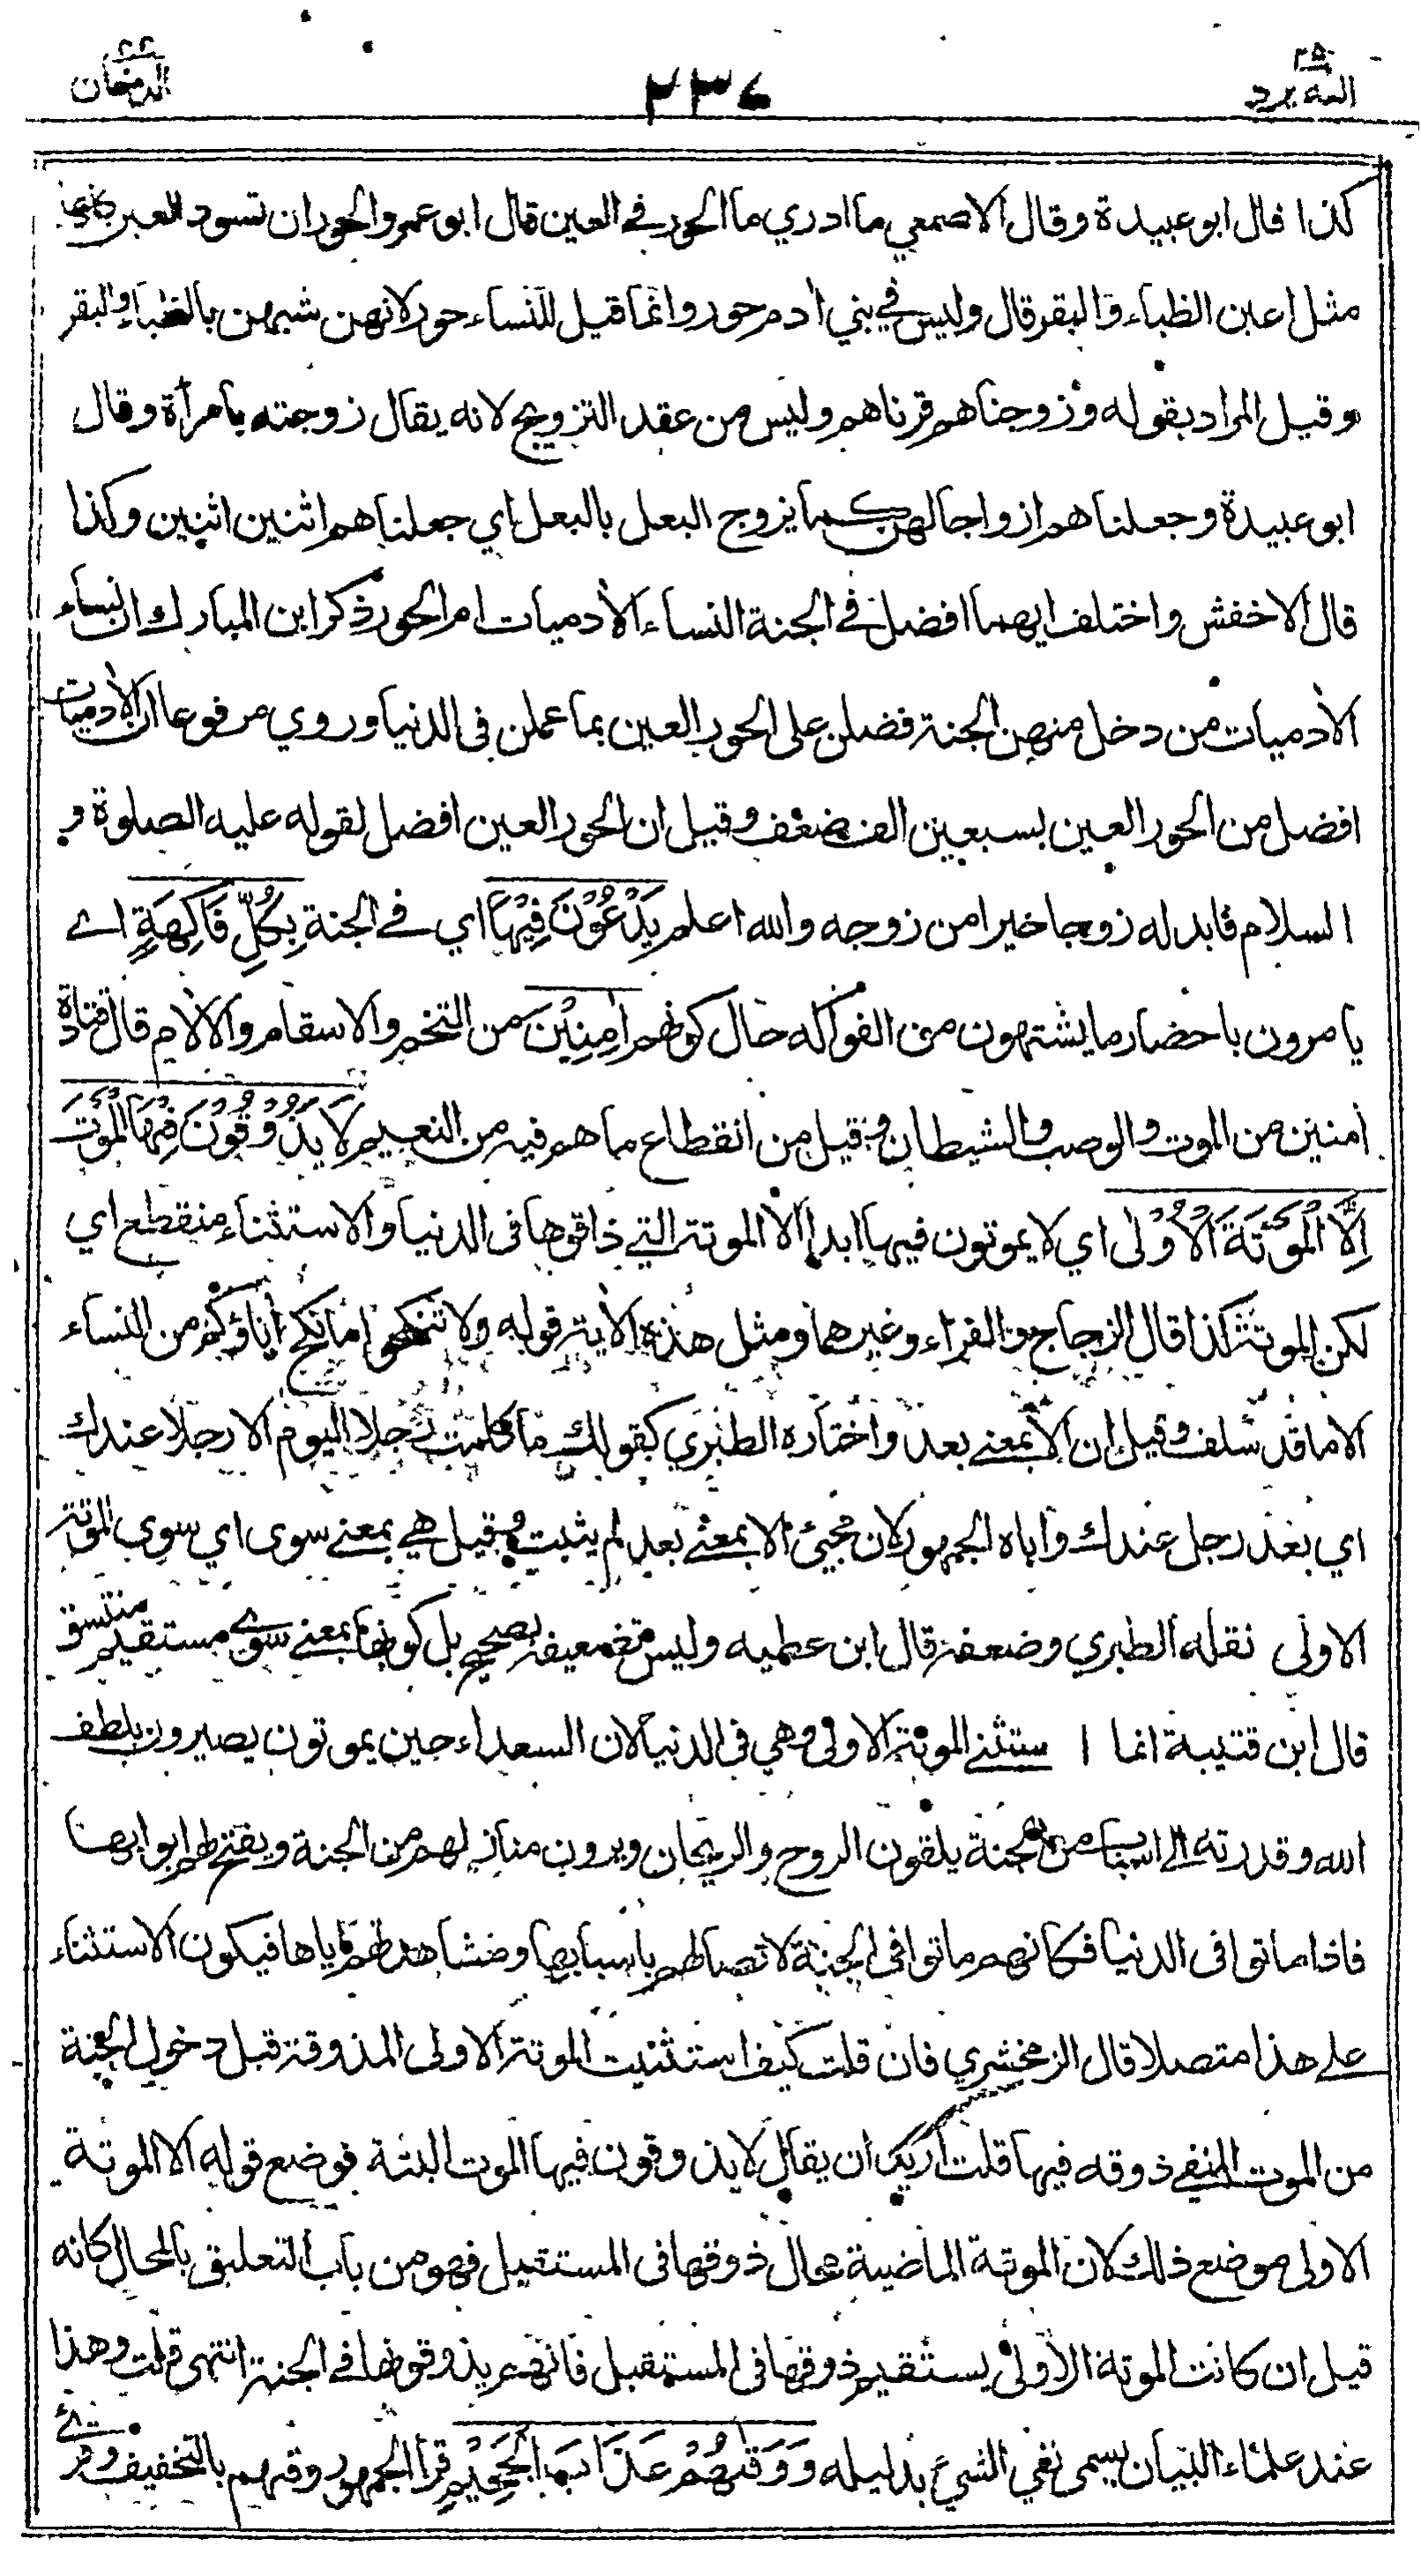 ٢٥
اليه يرد
٢٣٧
٤٤
الدخان
كذا قال ابو عبيدة وقال الاصمعي ما ادري ما الحور في العين قال ابو عمرو والحور ان تسود العين كلها
مثل اعين الظباء والبقر قال وليس في بني اٰدم حور وانما قيل للنساء حور لانهن شبهن بالظباء والبقر
وقيل المراد بقوله وزوجناهم قرناهم وليس من عقد التزويج لانه يقال زوجته بامرأة وقال
ابو عبيدة وجعلناهم ازواجا لهن كما يزوج البعل بالبعل اي جعلناهم اثنين اثنين وكذا
قال الاخفش واختلف ايهما افضل في الجنة النساء الاٰدميات ام الحور ذكر ابن المبارك ان نساء
الاٰدميات من دخل منهن الجنة فضلن على الحور العين بما عملن في الدنيا وروي مرفوعا ان الاٰدميات
افضل من الحور العين بسبعين الف ضعف وقيل ان الحور العين افضل لقوله عليه الصلوة و
السلام فابدله زوجا خيرا من زوجه والله اعلم يَدْعُوْنَ فِيْهَا اي في الجنة بِكُلِّ فَاكِهَةٍ اے
يامرون باحضار ما يشتهون من الفواكه حال كونهم اٰمِنِيْنَ من التخم والاسقام والالام قال قتادة
اٰمنين من الموت والوصب والشيطان وقيل من انقطاع ما هم فيه من النعيم لَا يَذُوْقُوْنَ فِيْهَا الْمَوْتَ
اِلَّا الْمَوْتَةَ الْاُوْلٰى اي لا يموتون فيها ابدا الا الموتة التي ذاقوها في الدنيا والاستثناء منقطع اي
لكن الموتة كذا قال الزجاج والفراء وغيرهما ومثل هذه الاٰية قوله ولا تنكحوا ما نكح اٰباؤكم من النساء
الا ما قد سلف وقيل ان الا بمعنے بعد واختاره الطبري كقولك ما كلمت رجلا اليوم الا رجلا عندك
اي بعد رجل عندك واباه الجمهور لان مجيئ الا بمعنے بعد لم يثبت وقيل هي بمعنے سوى اي سوى الموتة
الاولى نقله الطبري وضعفه قال ابن عطيه وليس تضعيفه بصحيح بل كونها بمعنے سوے مستقيم متسق
قال ابن قتيبة انما استثنے الموتة الاولى وهي في الدنيا لان السعداء حين يموتون يصيرون بلطف
الله وقدرته الى اسباب من الجنة يلقون الروح والريحان ويرون منازلهم من الجنة ويفتح لهم ابوابها
فاذا ماتوا في الدنيا فكانهم ماتوا في الجنة لاتصالهم باسبابها ومشاهدتهم اياها فيكون الاستثناء
علے هذا متصلا قال الزمخشري فان قلت كيف استثنيت الموتة الاولى المذوقة قبل دخول الجنة
من الموت المنفي ذوقه فيها قلت اريد ان يقال لا يذوقون فيها الموت البتة فوضع قوله الا الموتة
الاولى موضع ذلك لان الموتة الماضية محال ذوقها في المستقبل فهو من باب التعليق بالمحال كانه
قيل ان كانت الموتة الاولى يستقيم ذوقها في المستقبل فانهم يذوقونها في الجنة انتهى قلت وهذا
عند علماء البيان يسمى نفي الشيء بدليله وَوَقٰهُمْ عَذَابَ الْجَحِيْمِ قرأ الجمهور وقٰهم بالتخفيف وقرئ